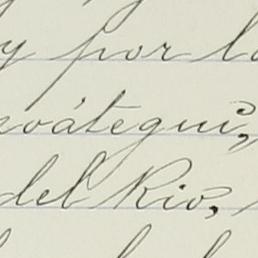 y por la
oátegui,
del Rio,